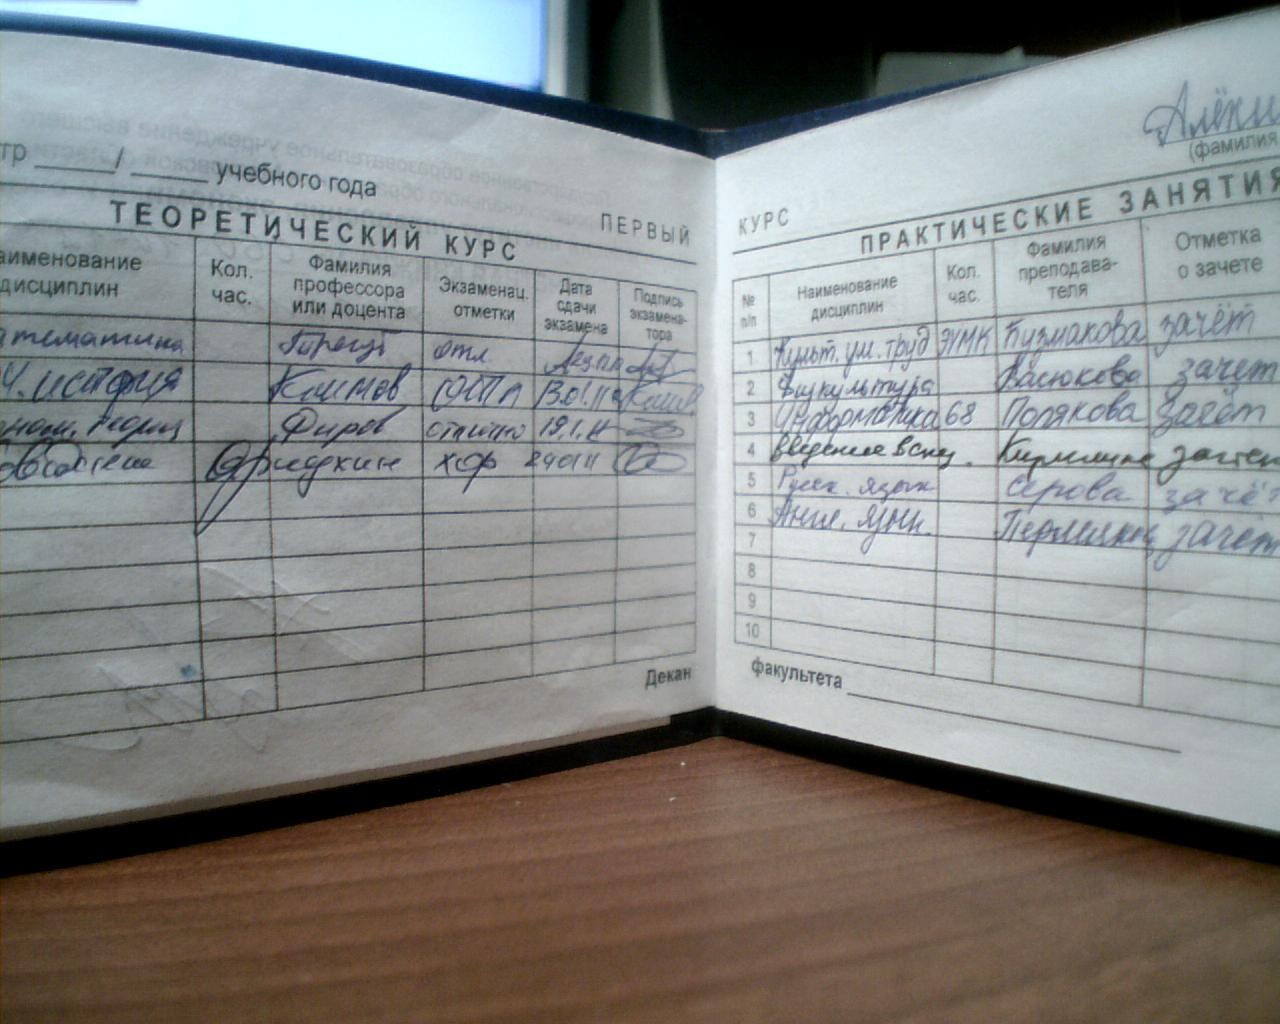 тр ____/____ учебного года
ТЕОРЕТИЧЕСКИЙ КУРС
ПЕРВЫЙ
аименование дисциплин
Кол. час.
Фамилия профессора или доцента
Экзаменац. отметки
Дата сдачи экзамена
Подпись экзамена-тора
атематика отл
история Климов ОТЛ 13.01.11
Фиров отлично 19.1.11
Фридкин хор 240111
Декан
Алёхи
(фамилия
КУРС
ПРАКТИЧЕСКИЕ ЗАНЯТИЯ
№ п/п
Наименование дисциплин
Кол. час.
Фамилия преподава-теля
Отметка о зачете
1 Культ. ум. труд УМК Кузмакова зачёт
2 Физкультура Васюкова зачет
3 Информатика 68 Полякова Зачёт
4 введение в спец. зачтен
5 Русск. язык Серова зачёт
6 Англ. язык зачет
7
8
9
10
факультета